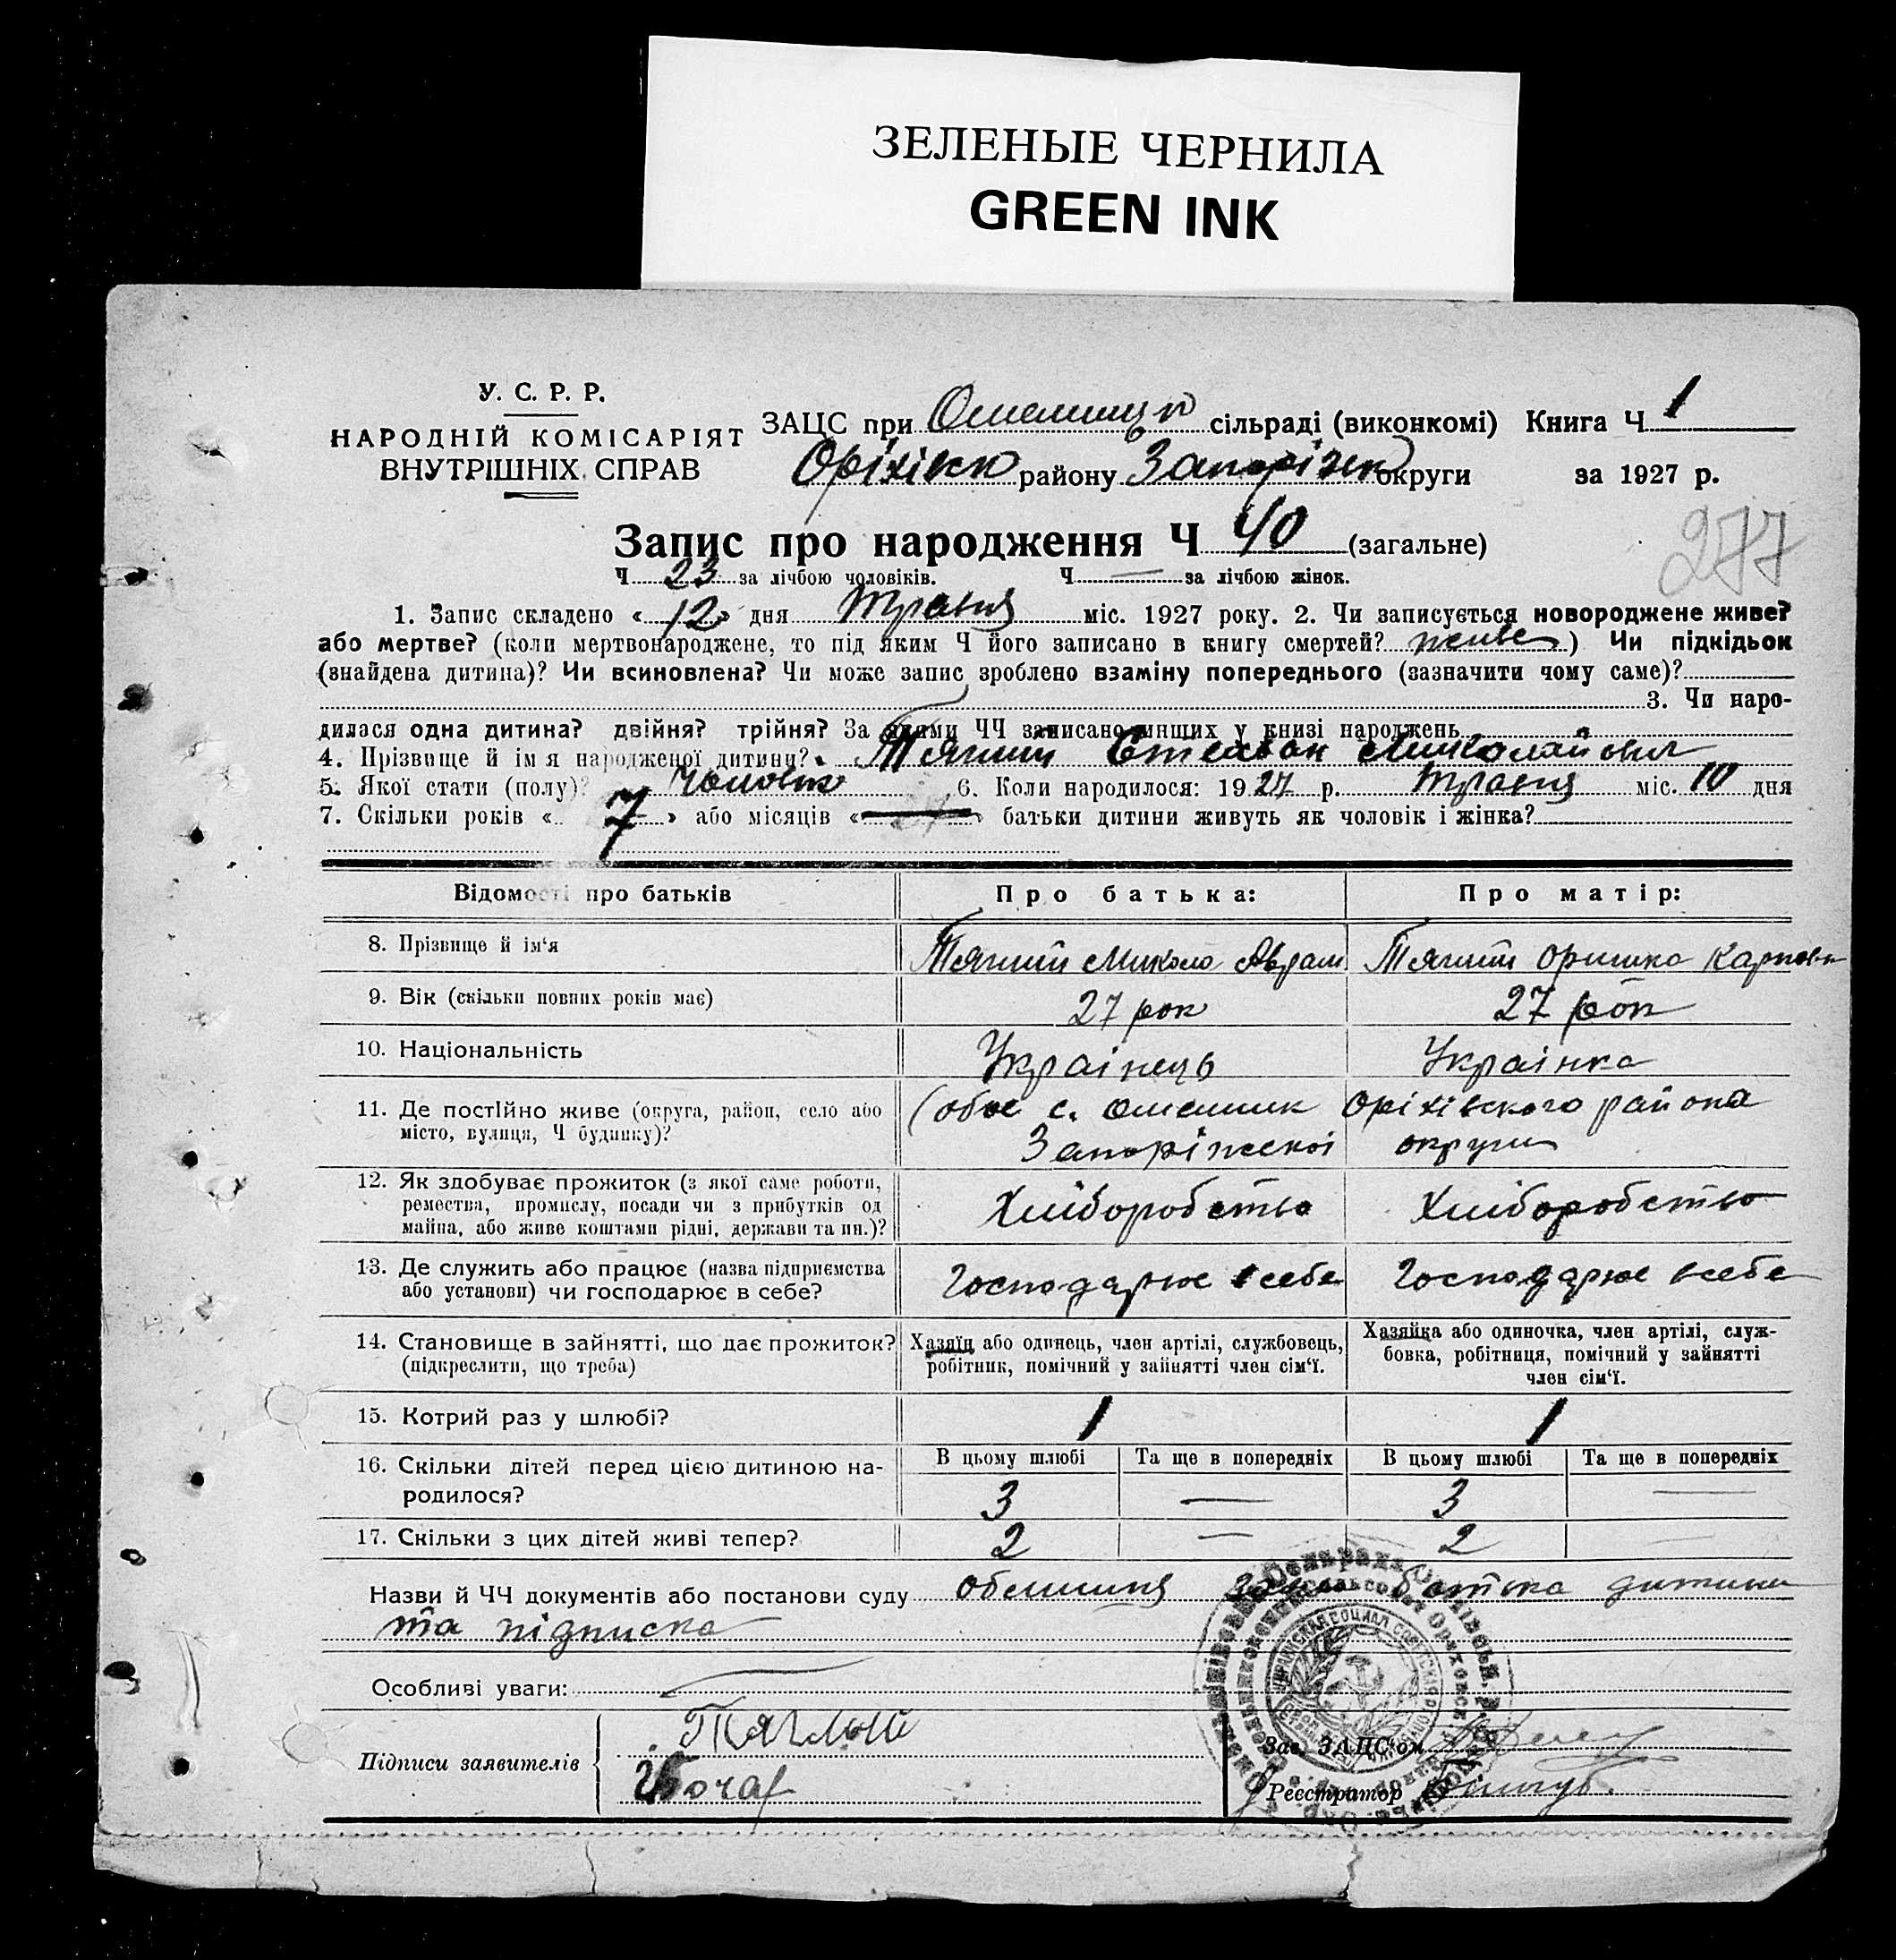 ЗЕЛЕНЫЕ ЧЕРНИЛА
GREEN INK
У. С. Р. Р.
НАРОДНІЙ КОМІСАРІЯТ
ВНУТРІШНІХ СПРАВ
ЗАЦС при сільраді (виконкомі) Книга Ч 1
Оріхівськ району Запоріжськ округи за 1927 р.
277
Запис про народження Ч 40 (загальне)
Ч 23 за лічбою чоловіків. Ч — за лічбою жінок.
1. Запис складено « 12 » дня травня міс. 1927 року. 2. Чи записується новороджене живе?
або мертве? (коли мертвонароджене, то під яким Ч його записано в книгу смертей? живе ) Чи підкідьок
(знайдена дитина)? Чи всиновлена? Чи може запис зроблено взаміну попереднього (зазначити чому саме)?
3. Чи наро-
дилася одна дитина? двійня? трійня? За якими ЧЧ записано инших у книзі народжень
4. Прізвище й ім я народженої дитини? Тяглий Степан Миколайович
5. Якої стати (полу)? Чоловік 6. Коли народилося: 1927 р. травня міс. 10 дня
7. Скільки років « 7 » або місяців « » батьки дитини живуть як чоловік і жінка?
Відомості про батьків Про батька: Про матір:
8. Прізвище й ім'я Тяглий Микола Аврам Тяглий Оришка Карповн
9. Вік (скільки повних років має) 27 рок 27 рок
10. Національність Українець Українка
11. Де постійно живе (округа, район, село або (обоє с. Омельник Оріхівского района
місто, вулиця, Ч будинку)? Запоріжскої округи
12. Як здобуває прожиток (з якої саме роботи,
ремества, промислу, посади чи з прибутків од Хліборобство Хліборобство
майна, або живе коштами рідні, держави та ин.)?
13. Де служить або працює (назва підприємства Господарює в себе Господарює всебе
або установи) чи господарює в себе?
14. Становище в зайнятті, що дає прожиток? Хазяїн або одинець, член артілі, службовець, Хазяйка або одиночка, член артілі, служ-
(підкреслити, що треба) робітник, помічний у зайнятті член сім'ї. бовка, робітниця, помічний у зайнятті
член сім'ї.
15. Котрий раз у шлюбі? 1 1
16. Скільки дітей перед цією дитиною на- В цьому шлюбі Та ще в попередніх В цьому шлюбі Та ще в попередніх
родилося? 3 — 3 —
17. Скільки з цих дітей живі тепер? 2 — 2
Назви й ЧЧ документів або постанови суду батька дитини
та підписка
Особливі уваги:
Підписи заявителів Тяглый
Бочар
Зав. ЗАЦС'ом
Реєстратор